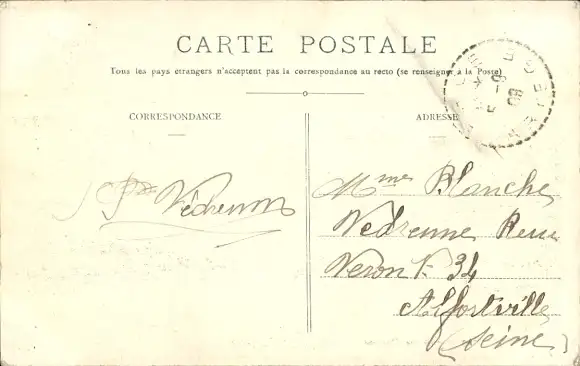 CARTE POSTALE
Tous les pays étrangers n'acceptent pas la correspondance au recto (se renseigner à la Poste)
CORRESPONDANCE
ADRESSE
Vedrenne
Mme Blanche
Vedrenne Rue
Veron N 34
Alfortville
(Seine)